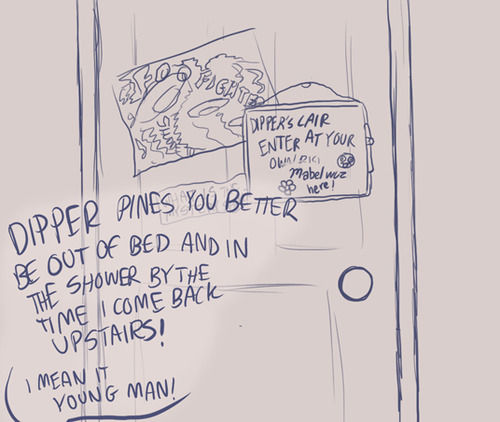 FIGHTE
DIPPER'S LAIR
ENTER AT YOUR
OWN
Mabel wuz
here!
DIPPER PINES YOU BETTER
BE OUT OF BED AND IN
THE SHOWER BY THE
TIME I COME BACK
UPSTAIRS!
I MEAN IT
YOUNG MAN!